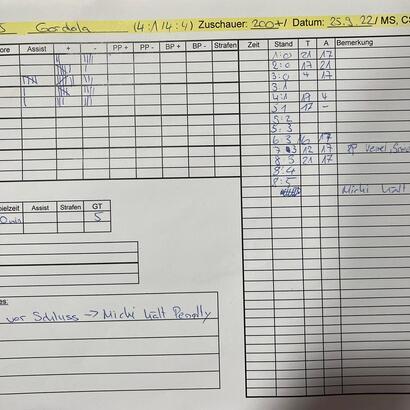 5 Gordola (4:1/4:4) Zuschauer: 200+/ Datum: 25.9.22/ MS, CS
ore Assist + - PP + PP - BP + BP - Strafen Zeit Stand T A Bemerkung
1:0 21 17
2:0 17 21
3:0 4 17
3:1
4:1 17 4
5:1 17 -
5:2
5:3
6:3 16 17
7:3 12 17 PP
8:3 21 17
8:4
8:5
Michi hält
pielzeit Assist Strafen GT
0min 5
es:
vor Schluss → Michi hält Penalty